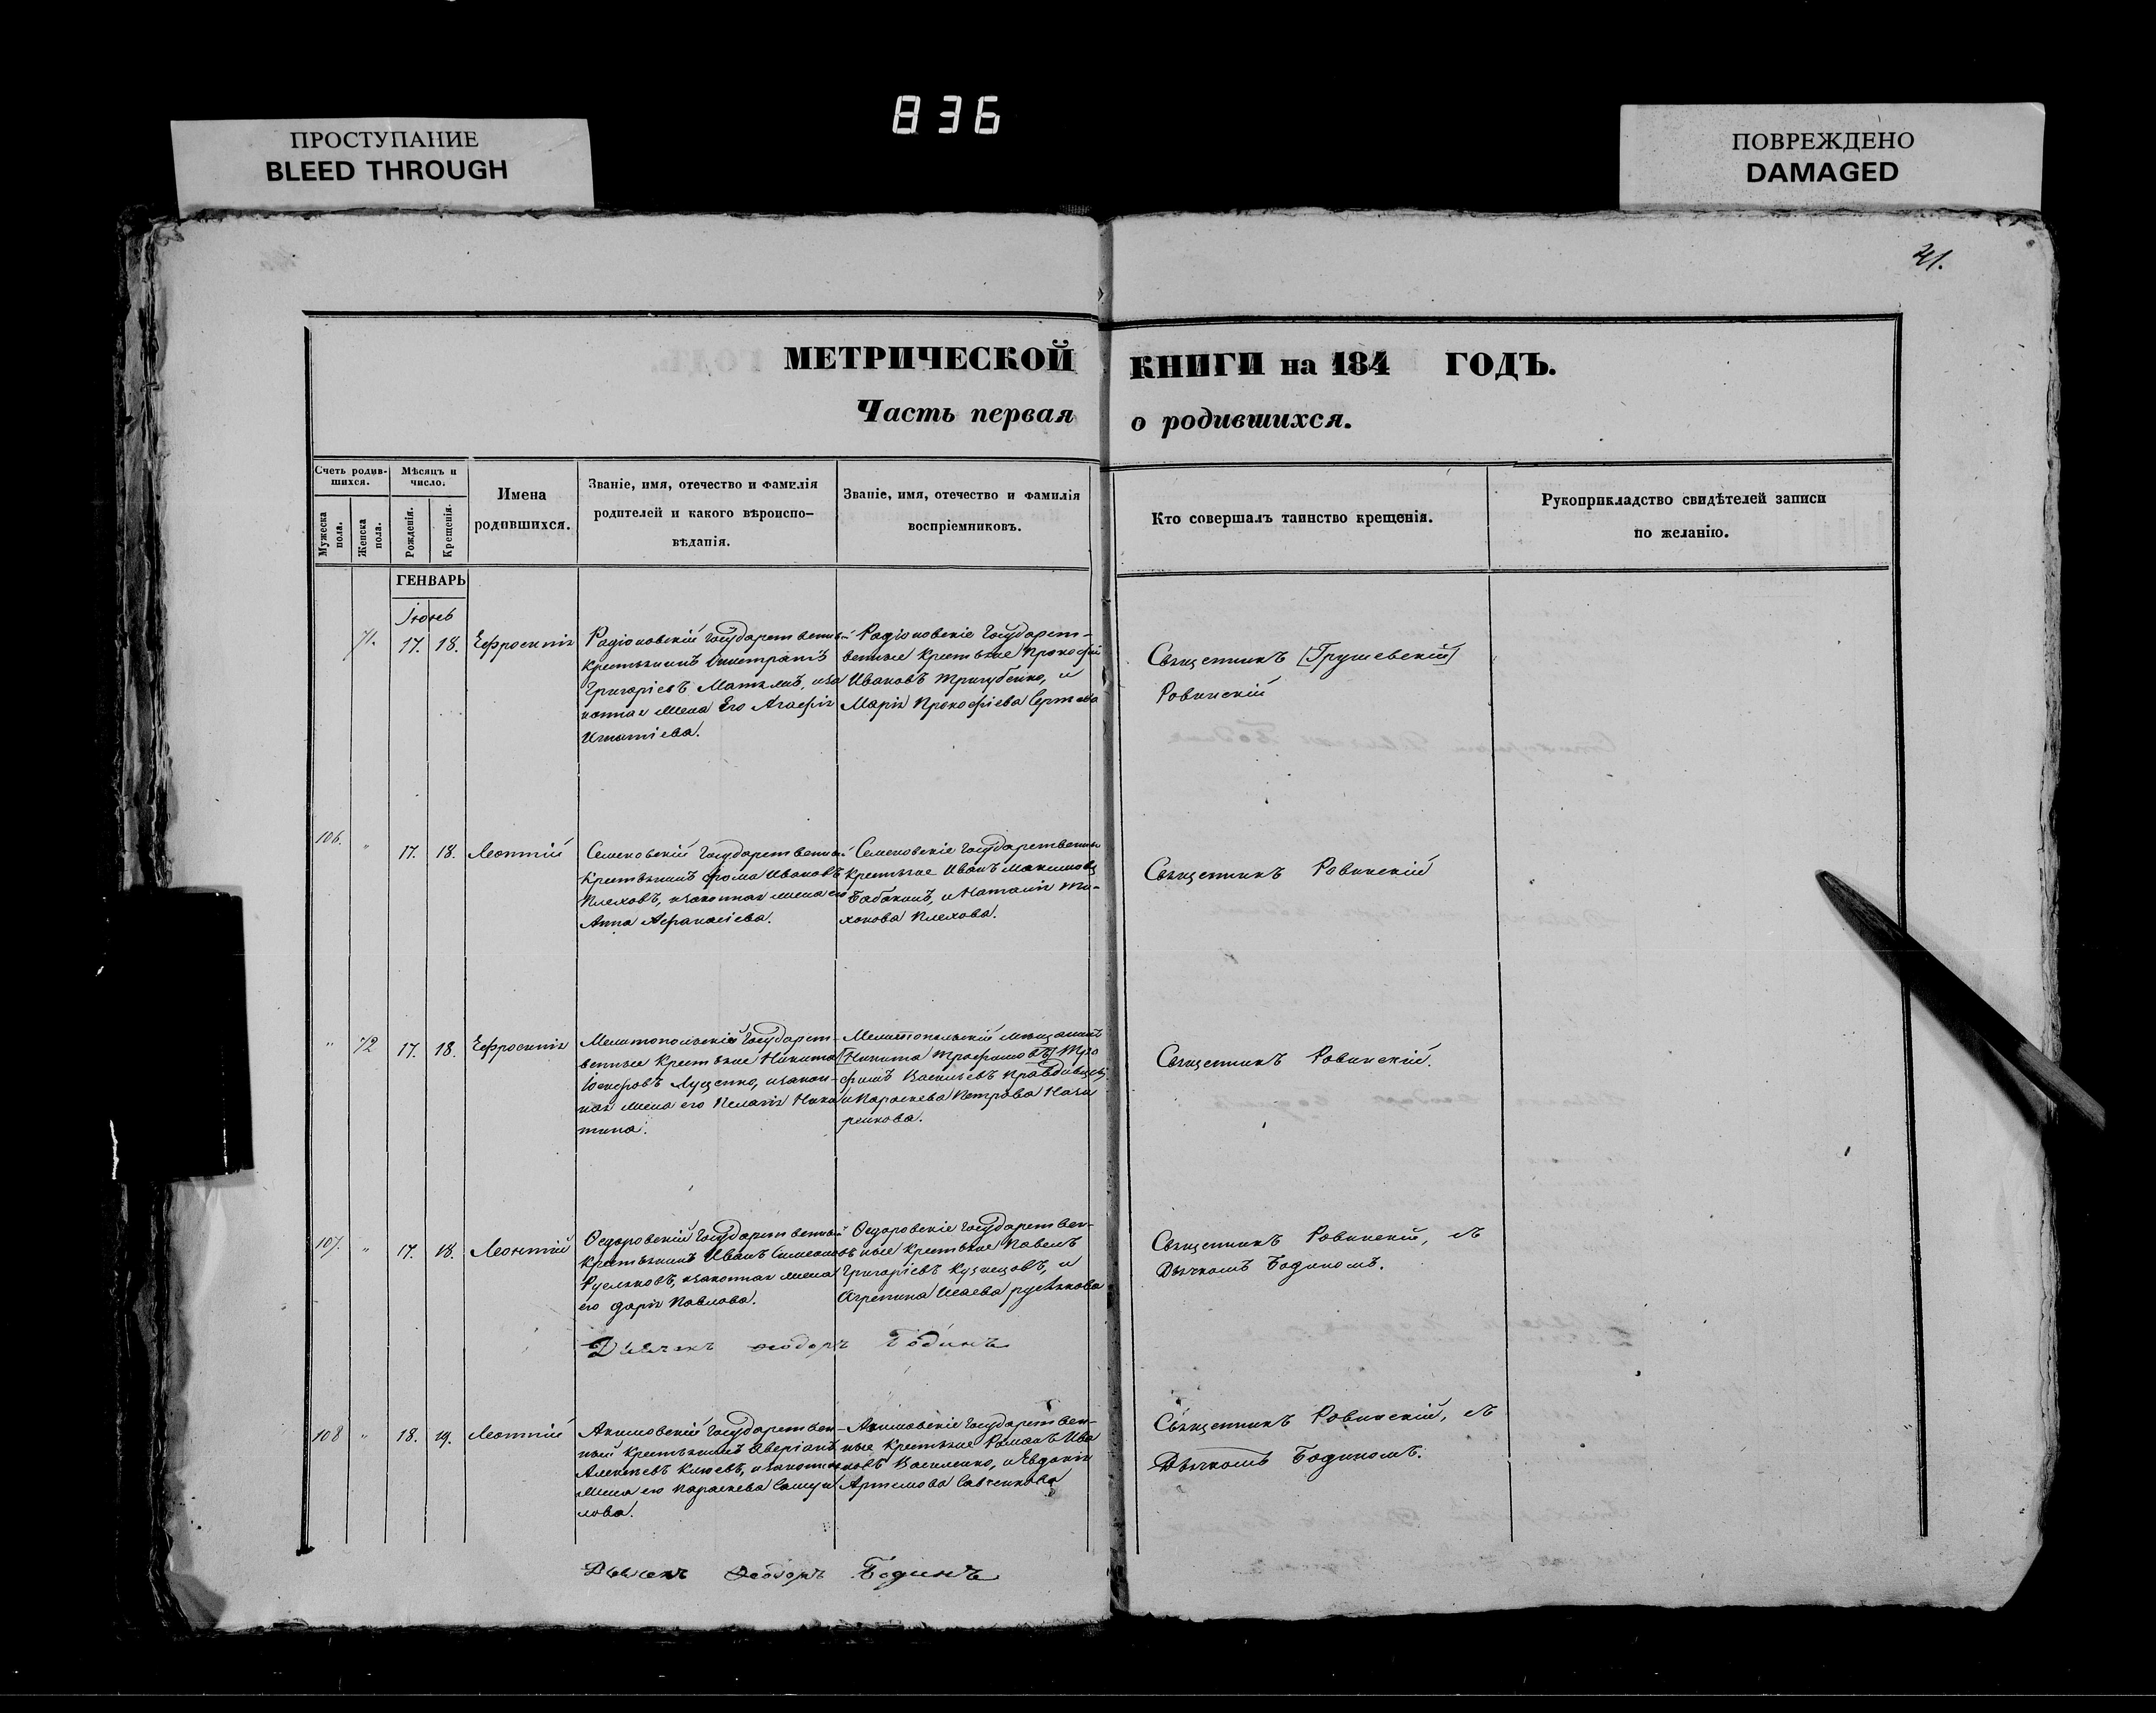 836
ПРОСТУПАНИЕ
BLEED THROUGH
ПОВРЕЖДЕНО
DAMAGED
41.
МЕТРИЧЕСКОЙ КНИГИ на 184 ГОДЪ.
Часть первая о родившихся.
Счетъ родив-
шихся.
Мужеска пола.
Женска пола.
Мѣсяцъ и
число.
Рожденія.
Крещенія.
Имена
родившихся.
Званіе, имя, отечество и фамилія
родителей и какого вѣроиспо-
вѣданія.
Званіе, имя, отечество и фамилія
воспріемниковъ.
Кто совершалъ таинство крещенія.
Рукоприкладство свидѣтелей записи
по желанію.
ГЕНВАРЬ
Іюнь
71. 17. 18. Ефросинія
Радіоновскій Государственный
Крестьянинъ
Григоріевъ, иза
конная жена Его Агафія
Игнатіева.
Радіоновскіе Государст-
венные Крестьяне Прокофій
Ивановъ Тригубенко, и
Марія Прокофіева
Священникъ [Грушевскій]
Ровинскій
106. " 17. 18. Леонтій
Семеновскій Государственный
Крестьянинъ Фома Ивановъ
Плеховъ, изаконная жена его
Анна Афанасіева.
Семеновскіе Государственные
Крестьяне Иванъ Максимовъ
Бабакинъ, и Наталія Ти-
хонова Плехова.
Священникъ Ровинскій
" 72 17. 18. Ефросинія
Мелитопольскіе Государст-
венные Крестьяне Никита
Іосифовъ Луценко, изакон-
ная жена его Пелагія Ники
тина.
Мелитопольскій мещанинъ
[Никита Трофимовъ] Тро
фимъ Васильевъ
и Параскева Петрова
Священникъ Ровинскій.
107. " 17. 18. Леонтій
Федоровскій Государственный
Крестьянинъ Иванъ Симеоновъ
Русльковъ, изаконная жена
его Дарія Павлова.
Федоровскіе Государствен-
ные Крестьяне Павелъ
Григоріевъ Кузнецовъ, и
Агрепина Исаева
Священникъ Ровинскій, съ
Дьячкомъ Бодиномъ.
Дьячекъ Феодоръ Бодинъ
108 " 18. 19. Леонтій
Акимовскій Государствен-
ный Крестьянинъ Аверіанъ
Алексѣевъ Клюевъ, изаконная
жена его Параскева Самуи
лова.
Акимовскіе Государствен-
ные Крестьяне Романъ Ива
новъ Василенко, и Евдокія
Артемова Савченкова
Священникъ Ровинскій, съ
Дьячкомъ Бодиномъ.
Дьячекъ Феодоръ Бодинъ